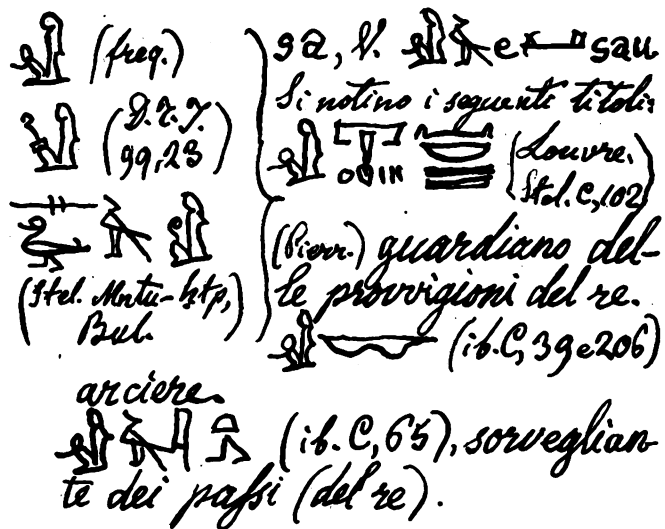 (freq.)
99,23)
(Stel. Mntu-ḥtp,
Bul.)
sa, V. e sau
Si notino i seguenti titoli:
(Louvre,
Stel. C, 102)
(Pierr.) guardiano del-
le provvigioni del re.
(ib. C, 39 e 206)
arciere.
(ib. C, 65), sorveglian-
te dei passi (del re).